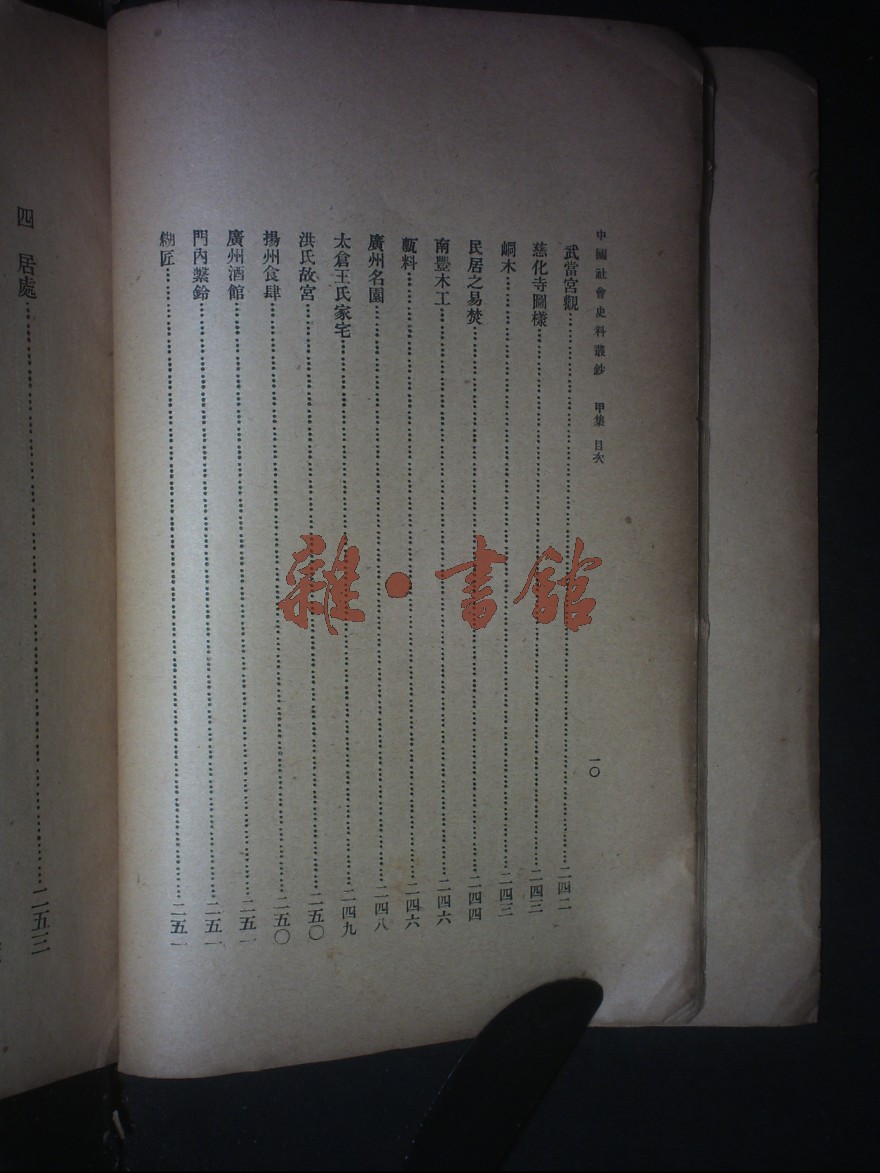 中國社會史料叢鈔　甲集　目次　一〇
武當宮觀……二四二
慈化寺圖樣……二四三
峒木……二四三
民居之易焚……二四四
南豐木工……二四六
甎料……二四六
廣州名園……二四八
太倉王氏家宅……二四九
洪氏故宮……二五〇
揚州食肆……二五〇
廣州酒館……二五一
門內繫鈴……二五一
糊匠……二五一
四　居處……二五三
雜·書館